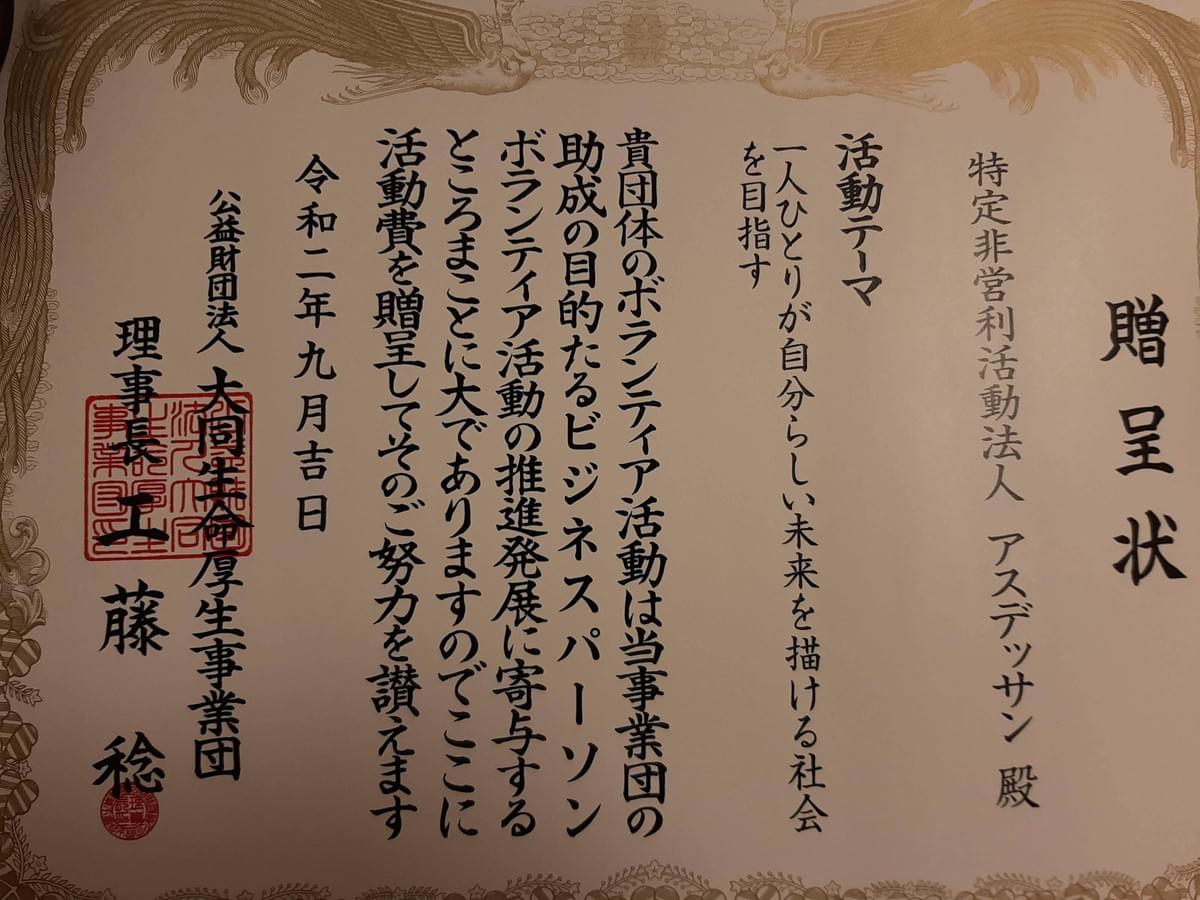 贈呈状
特定非営利活動法人 アスデッサン 殿
活動テーマ
一人ひとりが自分らしい未来を描ける社会
を目指す
貴団体のボランティア活動は当事業団の
助成の目的たるビジネスパーソン
ボランティア活動の推進発展に寄与する
ところまことに大でありますのでここに
活動費を贈呈してそのご努力を讃えます
令和二年九月吉日
公益財団法人 大同生命厚生事業団
理事長 工藤 稔